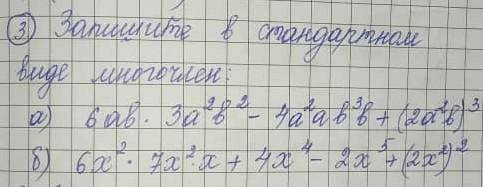 ③ Запишите в стандартном
виде многочлен:
а) 6ab · 3a²b² - 4a²ab³b + (2a²b)³
б) 6x² · 7x² · x + 4x⁴ - 2x⁵ + (2x²)²